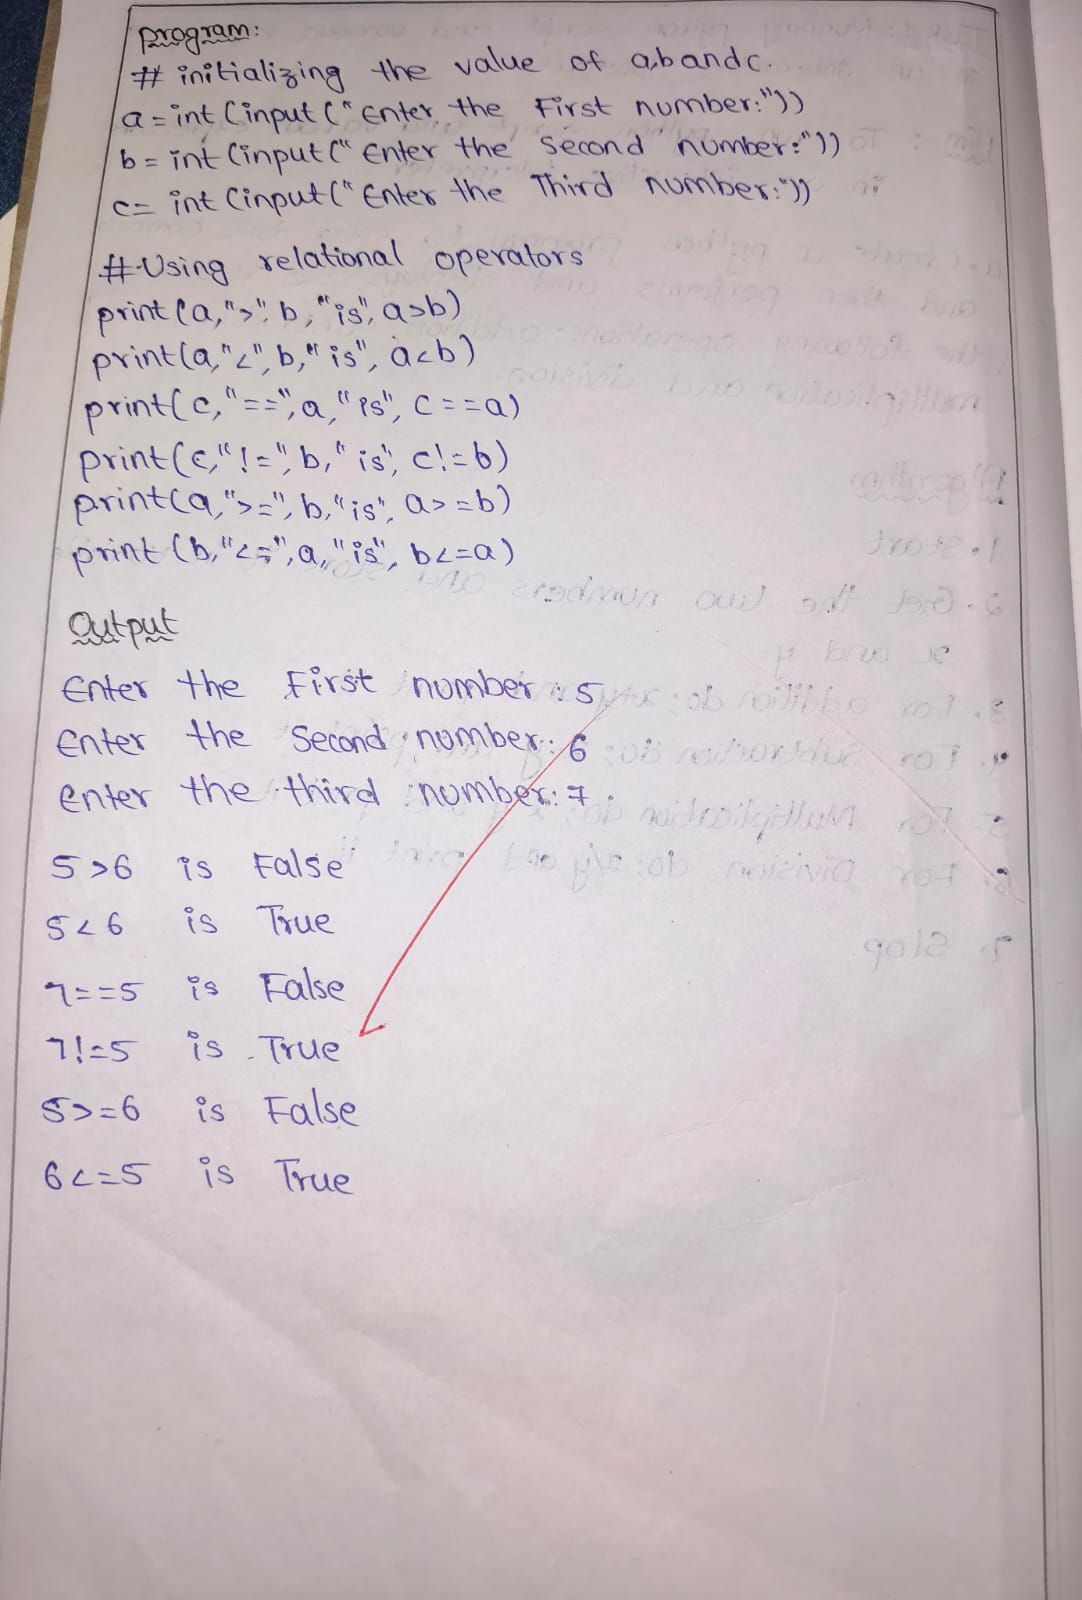 program:
# initializing the value of a,b and c.
a = int (input (" Enter the First number:"))
b = int (input (" Enter the Second number:"))
c = int (input (" Enter the Third number:"))
# Using relational operators
print (a, ">", b, "is", a>b)
print (a, "<", b, "is", a<b)
print (c, "==", a, "is", c==a)
print (c, "!=", b, "is", c!=b)
print (a, ">=", b, "is", a>=b)
print (b, "<=", a, "is", b<=a)
Output
Enter the First number : 5
Enter the Second number : 6
Enter the third number : 7
5 > 6 is False
5 < 6 is True
7 == 5 is False
7 != 5 is True
5 >= 6 is False
6 <= 5 is True